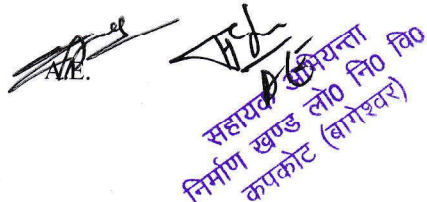 A.E.
सहायक अभियन्ता
निर्माण खण्ड लो० नि० वि०
कपकोट (बागेश्वर)